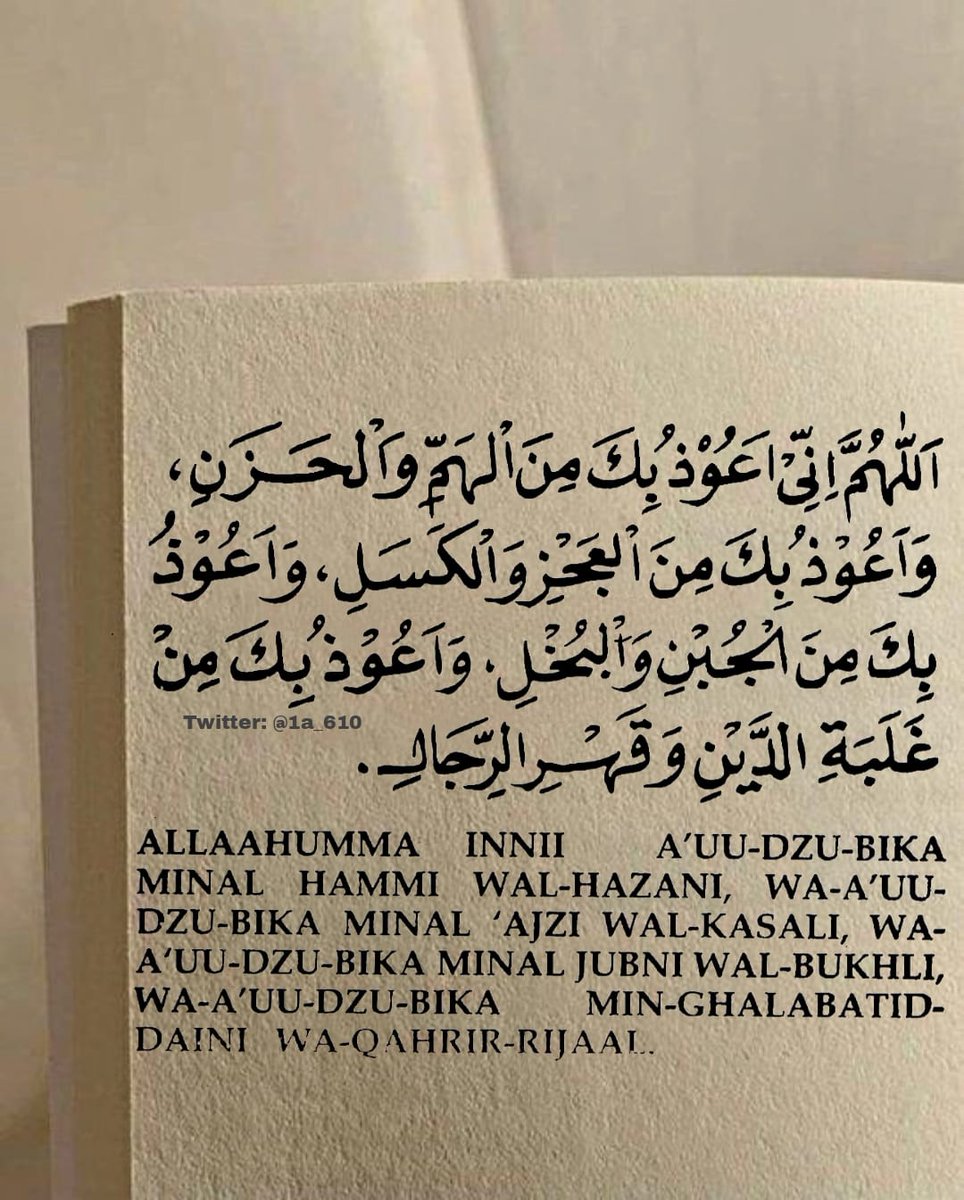 اَللّٰهُمَّ اِنِّيْ اَعُوْذُ بِكَ مِنَ الْهَمِّ وَالْحَزَنِ،
وَاَعُوْذُ بِكَ مِنَ الْعَجْزِ وَالْكَسَلِ، وَاَعُوْذُ
بِكَ مِنَ الْجُبْنِ وَالْبُخْلِ. وَاَعُوْذُ بِكَ مِنْ
Twitter: @1a_610
غَلَبَةِ الدَّيْنِ وَقَهْرِ الرِّجَالِ.
ALLAAHUMMA INNII A'UU-DZU-BIKA
MINAL HAMMI WAL-HAZANI, WA-A'UU-
DZU-BIKA MINAL 'AJZI WAL-KASALI, WA-
A'UU-DZU-BIKA MINAL JUBNI WAL-BUKHLI,
WA-A'UU-DZU-BIKA MIN-GHALABATID-
DAINI WA-QAHRIR-RIJAAL.